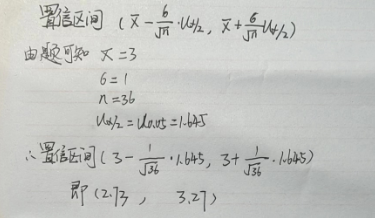 置信区间 (x̄ - σ/√n · U_{α/2}, x̄ + σ/√n U_{α/2})
由题可知 x̄ = 3
σ = 1
n = 36
U_{α/2} = U_{0.05} = 1.645
∴ 置信区间 (3 - 1/√36 · 1.645, 3 + 1/√36 · 1.645)
即 (2.73 , 3.27)